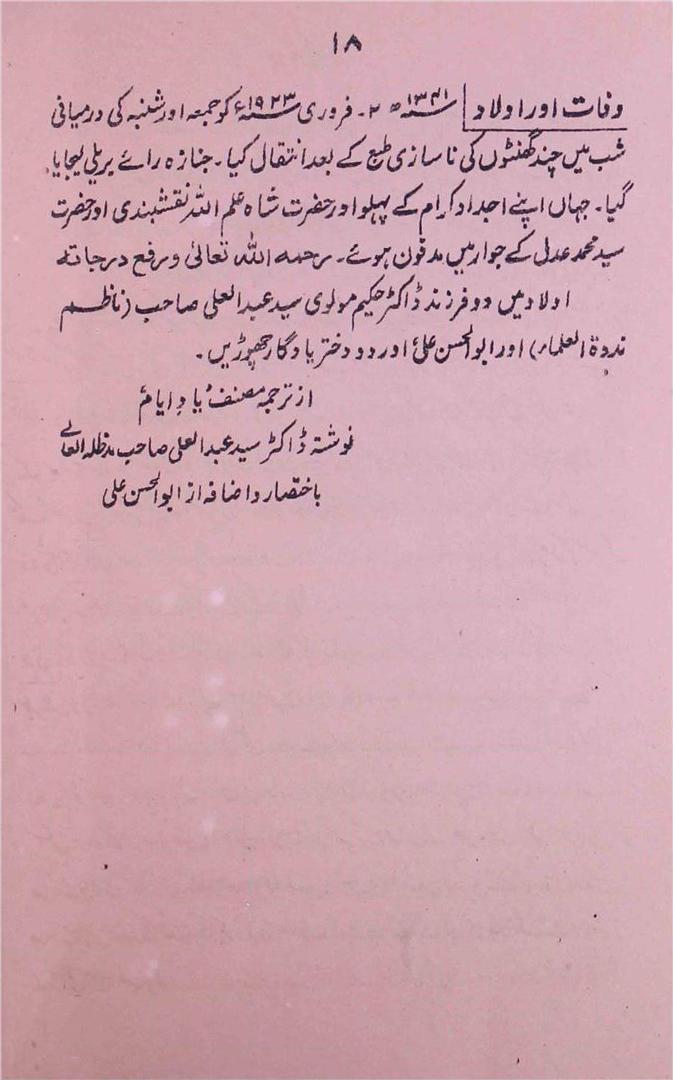 ۱۸
وفات اور اولاد | ۱۳۴۱ھ ۲۔ فروری ۱۹۲۳ء کو جمعہ اور شنبہ کی درمیانی
شب میں چند گھنٹوں کی ناسازی طبع کے بعد انتقال کیا۔ جنازہ رائے بریلی لیجایا
گیا۔ جہاں اپنے اجداد کرام کے پہلو اور حضرت شاہ علم اللہ نقشبندی اور حضرت
سید محمد عدل کے جوار میں مدفون ہوئے۔ رحمہ اللہ تعالیٰ ورفع درجاتہ
اولاد میں دو فرزند ڈاکٹر حکیم مولوی سید عبد العلی صاحب (ناظم
ندوۃ العلماء) اور ابوالحسن علی اور دو دختر یادگار چھوڑیں۔
از ترجمہ مصنف یاد ایام
نوشتہ ڈاکٹر سید عبد العلی صاحب مدظلہ العالی
باختصار و اضافہ از ابوالحسن علی